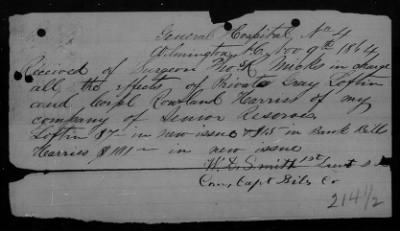 General Hospital, No 4
Wilmington, N.C., Nov 9th 1864
Received of Surgeon Tho R Micks in charge
all the effects of Private Gray Loftin
and Corpl Rowland Harriss of my
company of Senior Reserves
Loftin $7 in new issue & $15 in Bank Bills
Harriss $ in new issue
W. D. Smith 1st Lieut
Com, Capt Co
214 1/2